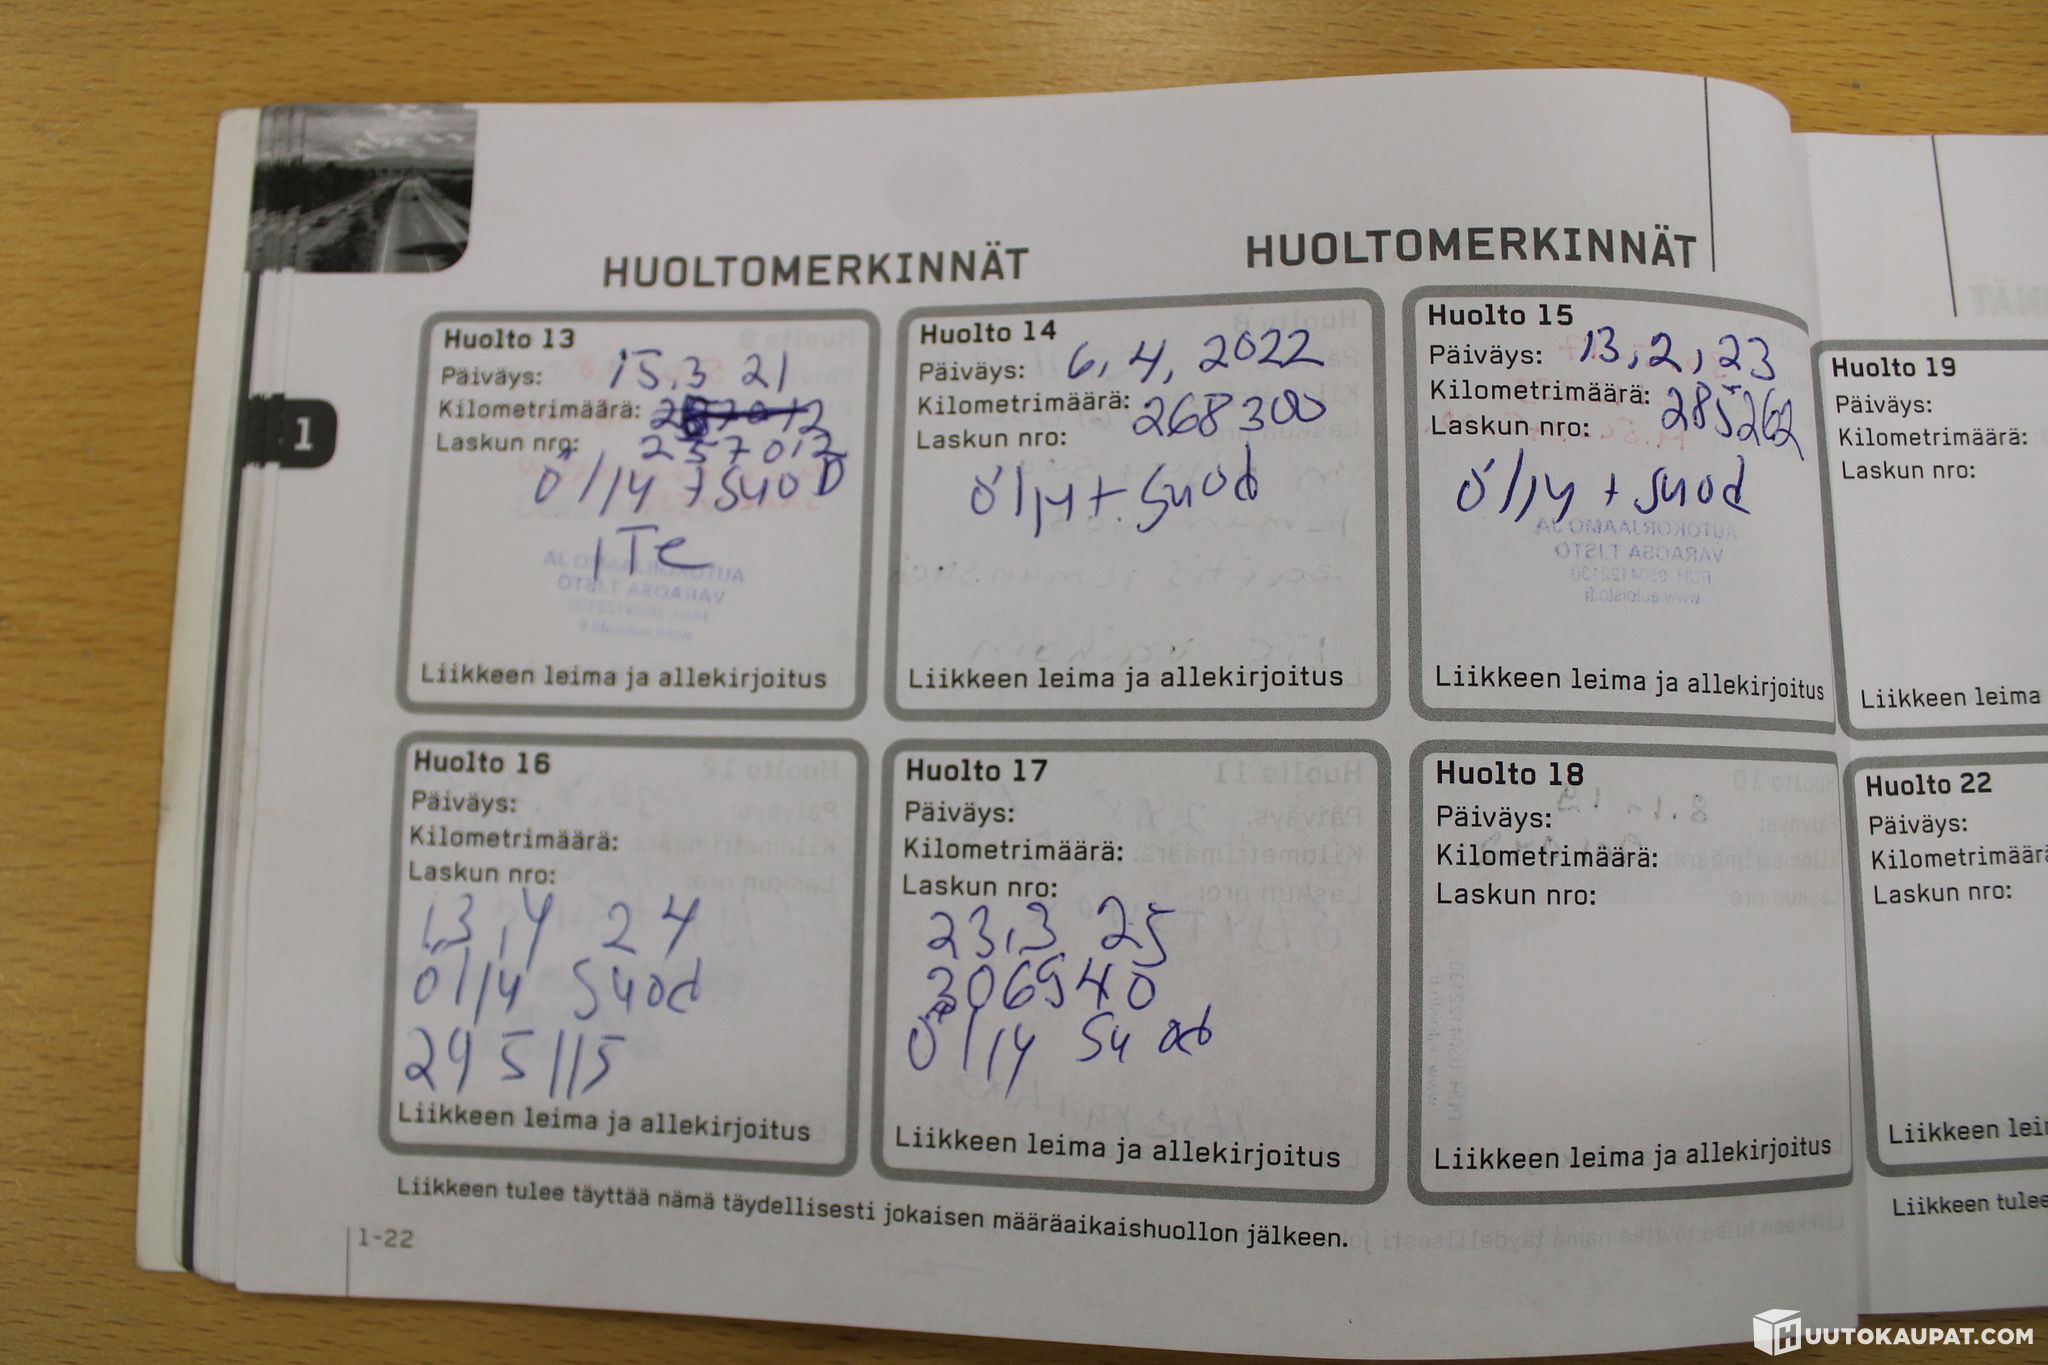 HUOLTOMERKINNÄT
HUOLTOMERKINNÄT
1
Huolto 13
Päiväys: 15.3 21
Kilometrimäärä:
Laskun nro: 257012
öljy + suoD
ITe
Liikkeen leima ja allekirjoitus
Huolto 14
Päiväys: 6,4,2022
Kilometrimäärä: 268300
Laskun nro:
öljy + suod
Liikkeen leima ja allekirjoitus
Huolto 15
Päiväys: 13,2,23
Kilometrimäärä: 285262
Laskun nro:
öljy + suod
AUTOKORJAAMO JA
VARAOSA T.ISTO
PUH. 0504122130
www.autoisto.fi
Liikkeen leima ja allekirjoitus
Huolto 19
Päiväys:
Kilometrimäärä:
Laskun nro:
Liikkeen leima
Huolto 16
Päiväys:
Kilometrimäärä:
Laskun nro:
13,4 24
öljy suod
295115
Liikkeen leima ja allekirjoitus
Huolto 17
Päiväys:
Kilometrimäärä:
Laskun nro:
23,3 25
306940
öljy suod
Liikkeen leima ja allekirjoitus
Huolto 18
Päiväys:
Kilometrimäärä:
Laskun nro:
Liikkeen leima ja allekirjoitus
Huolto 22
Päiväys:
Kilometrimäärä
Laskun nro:
Liikkeen leim
Liikkeen tulee täyttää nämä täydellisesti jokaisen määräaikaishuollon jälkeen.
Liikkeen tulee
1-22
HUUTOKAUPAT.COM